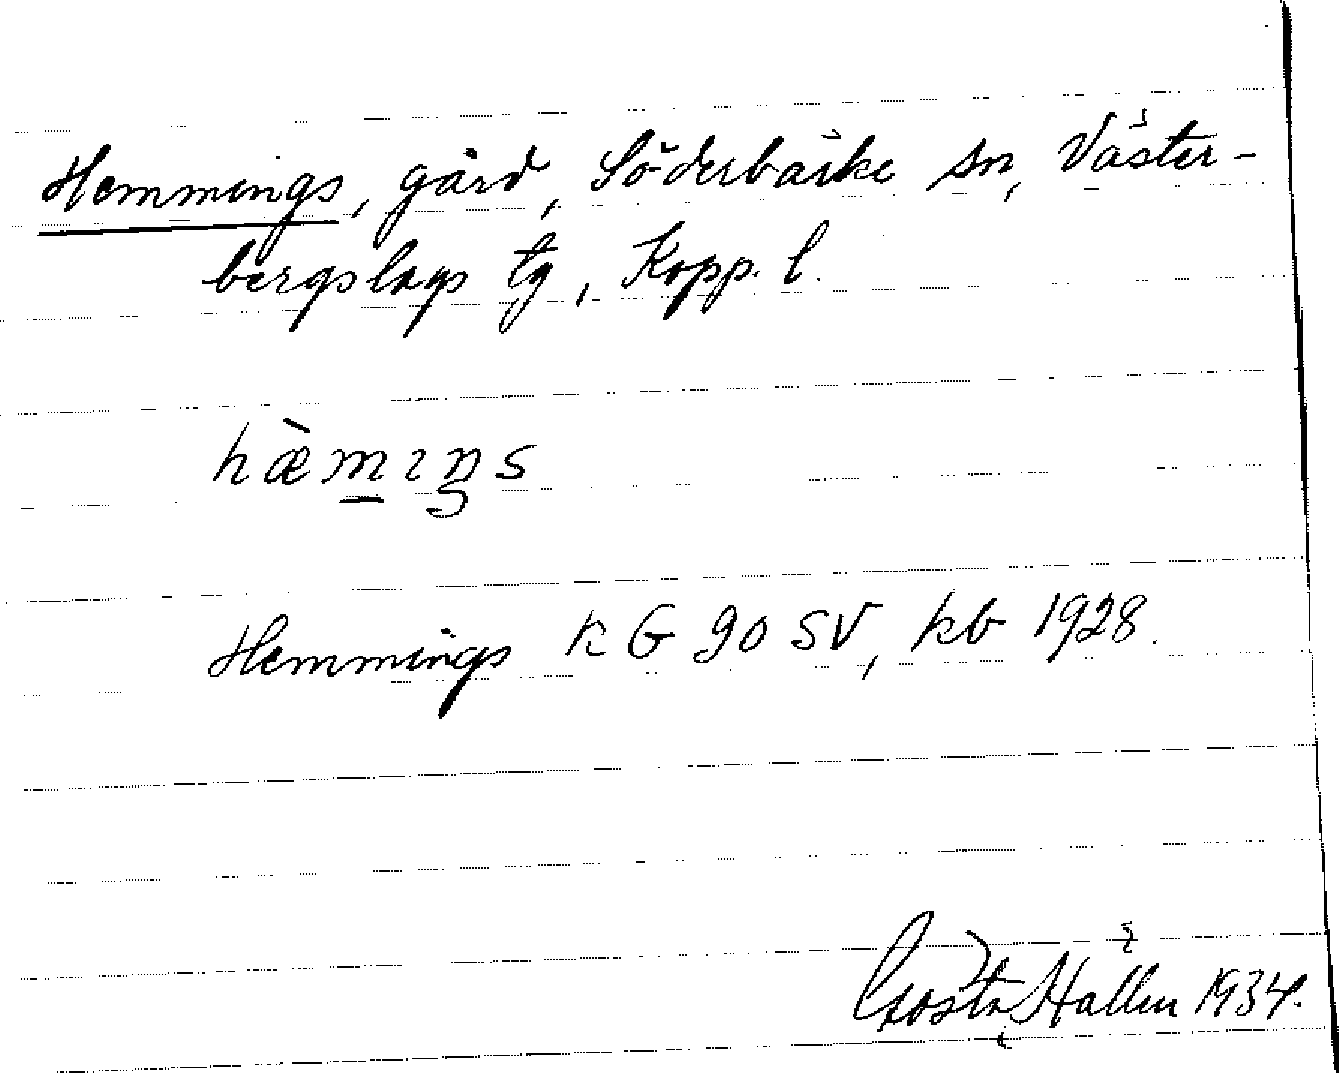 Hemmings, gård, Söderbärke sn, Väster-
bergslags tg, Kopp. l.
hæ̀m̲ıŋs
Hemmings KG 90 SV, kb 1928.
Gösta Hallén 1934.